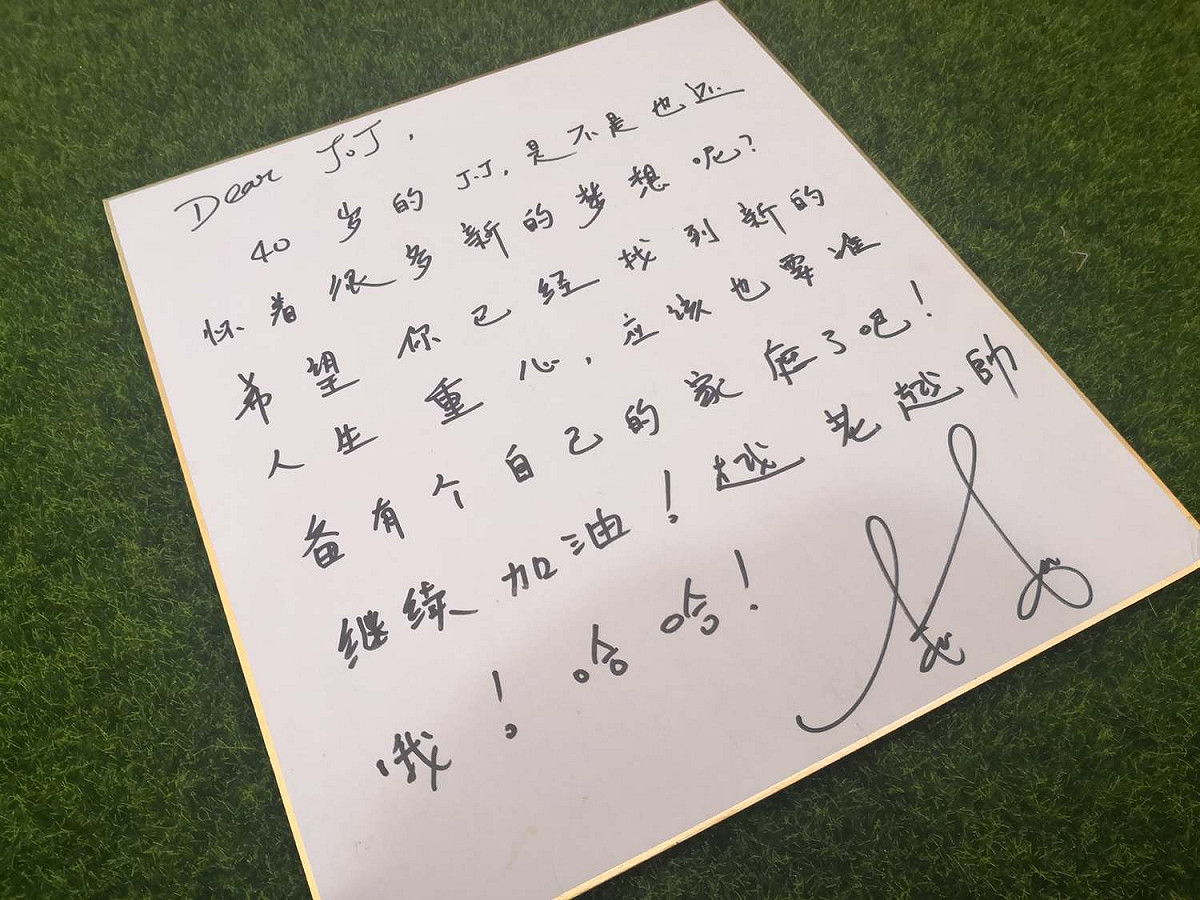 Dear J.J,
40 岁的 J.J,是不是也还
怀着很多新的梦想呢?
希望你已经找到新的
人生重心,应该也要准
备有个自己的家庭了吧!
继续加油!越老越帥
哦!哈哈!